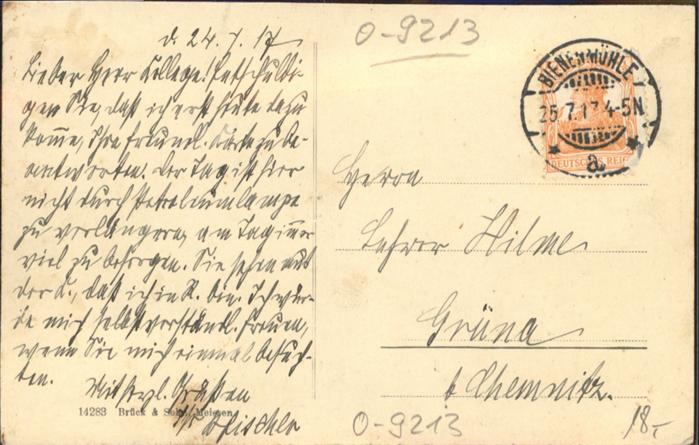 d. 24.7.17
Lieber Herr Kollege! Entschuldi-
gen Sie, daß ich erst heute dazu
komme, Ihre freundl. Karte zu be-
antworten. Der Tag ist hier
nicht durch Petroleumlampe
zu verlängern, am Tag immer
viel zu besorgen. Sie sehen aus
der K., daß ich in R. bin. Ich wür-
de mich selbstverständl. freuen,
wenn Sie mich einmal besuch-
ten.
Mit frdl. Grüßen
Fischer
14283 Brück & Sohn, Meissen
O-9213
BIENENMÜHLE
25.7.17.4-5N
a.
DEUTSCHES REICH
Herrn
Lehrer Hilme
Grüna
b Chemnitz.
O-9213
18.-